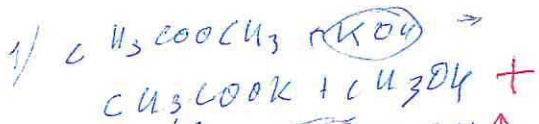 1) CH3COOCH3 + KOH →
CH3COOK + CH3OH +